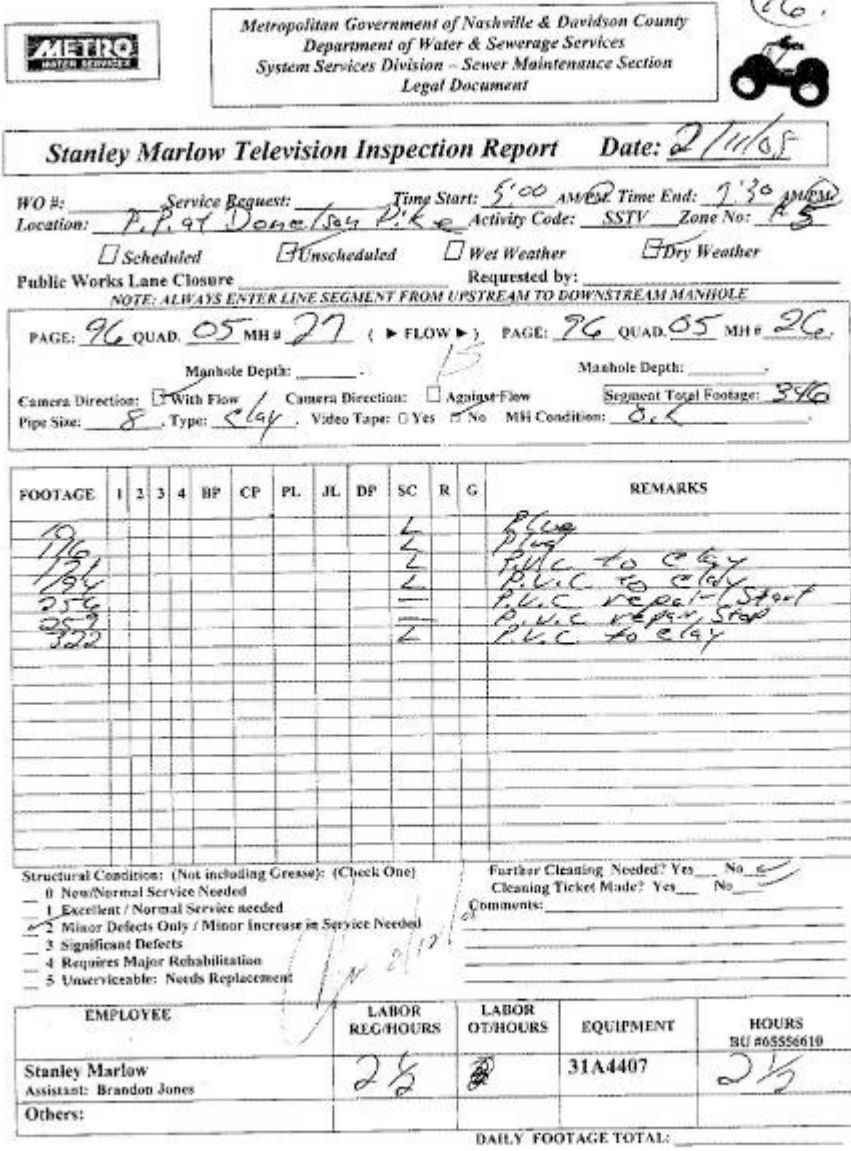 METRO
WATER SERVICES
Metropolitan Government of Nashville & Davidson County
Department of Water & Sewerage Services
System Services Division – Sewer Maintenance Section
Legal Document
Stanley Marlow Television Inspection Report Date: 2/11/05
WO #: Service Request: Time Start: 5:00 AM/PM Time End: 7:30 AM/PM
Location: P.P. at Donelson Pike Activity Code: SSTV Zone No: 5
Scheduled Unscheduled Wet Weather Dry Weather
Public Works Lane Closure Requested by:
NOTE: ALWAYS ENTER LINE SEGMENT FROM UPSTREAM TO DOWNSTREAM MANHOLE
PAGE: 96 QUAD. 05 MH # 27 ( ► FLOW ► ) PAGE: 96 QUAD. 05 MH # 26
Manhole Depth: Manhole Depth:
Camera Direction: With Flow Camera Direction: Against Flow Segment Total Footage: 346
Pipe Size: 8 . Type: Clay . Video Tape: Yes No MH Condition: O.K
FOOTAGE 1 2 3 4 BP CP PL JL DP SC R G REMARKS
10 L Plug
116 L Plug
121 L P.V.C to clay
194 L P.V.C to clay
256 — P.V.C repair Start
259 — P.V.C repair, Stop
322 L P.V.C to clay
Structural Condition: (Not including Grease): (Check One) Further Cleaning Needed? Yes No
0 New/Normal Service Needed Cleaning Ticket Made? Yes No
1 Excellent / Normal Service needed Comments:
2 Minor Defects Only / Minor Increase in Service Needed
3 Significant Defects
4 Requires Major Rehabilitation
5 Unserviceable: Needs Replacement
EMPLOYEE LABOR REG/HOURS LABOR OT/HOURS EQUIPMENT HOURS BU #65556610
Stanley Marlow 2 1/2 31A4407 2 1/2
Assistant: Brandon Jones
Others:
DAILY FOOTAGE TOTAL: